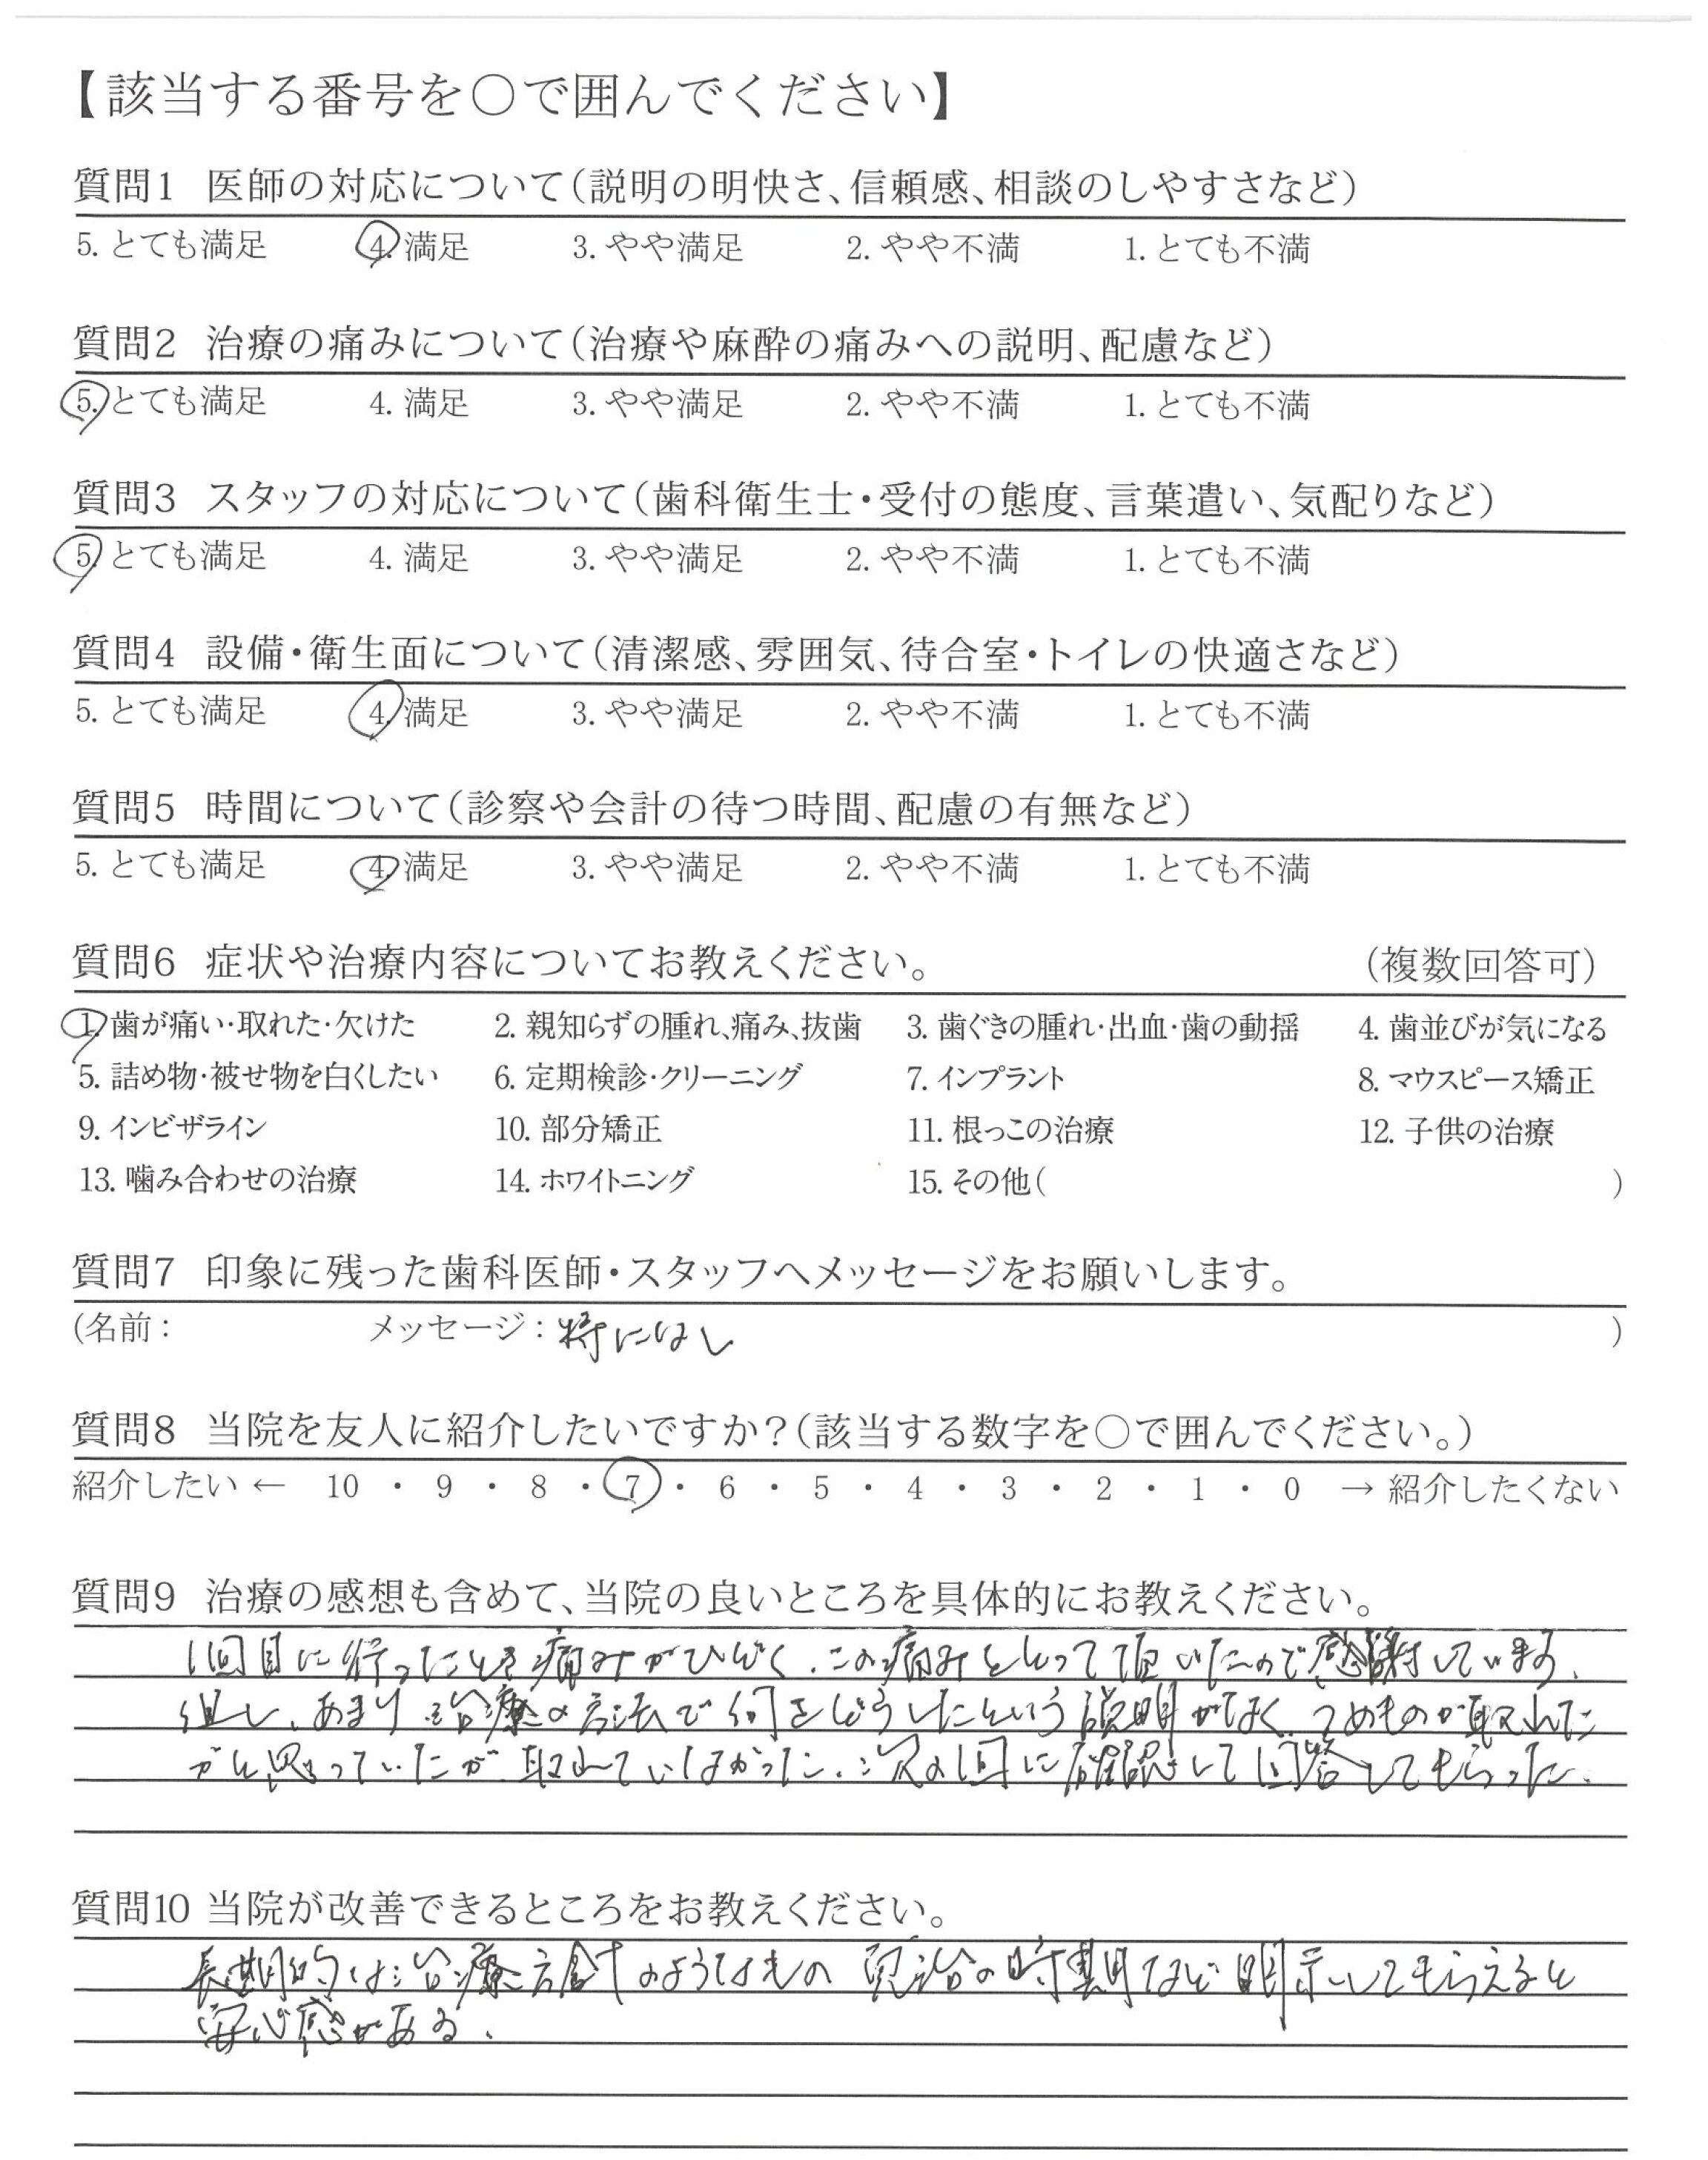 【該当する番号を○で囲んでください】
質問1 医師の対応について（説明の明快さ、信頼感、相談のしやすさなど）
5. とても満足 4. 満足 3. やや満足 2. やや不満 1. とても不満
質問2 治療の痛みについて（治療や麻酔の痛みへの説明、配慮など）
5. とても満足 4. 満足 3. やや満足 2. やや不満 1. とても不満
質問3 スタッフの対応について（歯科衛生士・受付の態度、言葉遣い、気配りなど）
5. とても満足 4. 満足 3. やや満足 2. やや不満 1. とても不満
質問4 設備・衛生面について（清潔感、雰囲気、待合室・トイレの快適さなど）
5. とても満足 4. 満足 3. やや満足 2. やや不満 1. とても不満
質問5 時間について（診察や会計の待つ時間、配慮の有無など）
5. とても満足 4. 満足 3. やや満足 2. やや不満 1. とても不満
質問6 症状や治療内容についてお教えください。 （複数回答可）
1. 歯が痛い・取れた・欠けた 2. 親知らずの腫れ、痛み、抜歯 3. 歯ぐきの腫れ・出血・歯の動揺 4. 歯並びが気になる
5. 詰め物・被せ物を白くしたい 6. 定期検診・クリーニング 7. インプラント 8. マウスピース矯正
9. インビザライン 10. 部分矯正 11. 根っこの治療 12. 子供の治療
13. 噛み合わせの治療 14. ホワイトニング 15. その他( )
質問7 印象に残った歯科医師・スタッフへメッセージをお願いします。
(名前： メッセージ：特になし )
質問8 当院を友人に紹介したいですか？（該当する数字を○で囲んでください。）
紹介したい ← 10 ・ 9 ・ 8 ・ 7 ・ 6 ・ 5 ・ 4 ・ 3 ・ 2 ・ 1 ・ 0 → 紹介したくない
質問9 治療の感想も含めて、当院の良いところを具体的にお教えください。
1回目に行ったとき痛みがひどく、この痛みをとって頂いたので感謝しています。
但し、あまり治療の方法で何をどうしたという説明がなく、つめものが取れた
かと思っていたが、取れていなかった。次の1回に確認して回答してもらった。
質問10 当院が改善できるところをお教えください。
長期的な治療方針のようなもの 完治の時期など明示してもらえると
安心感がある。